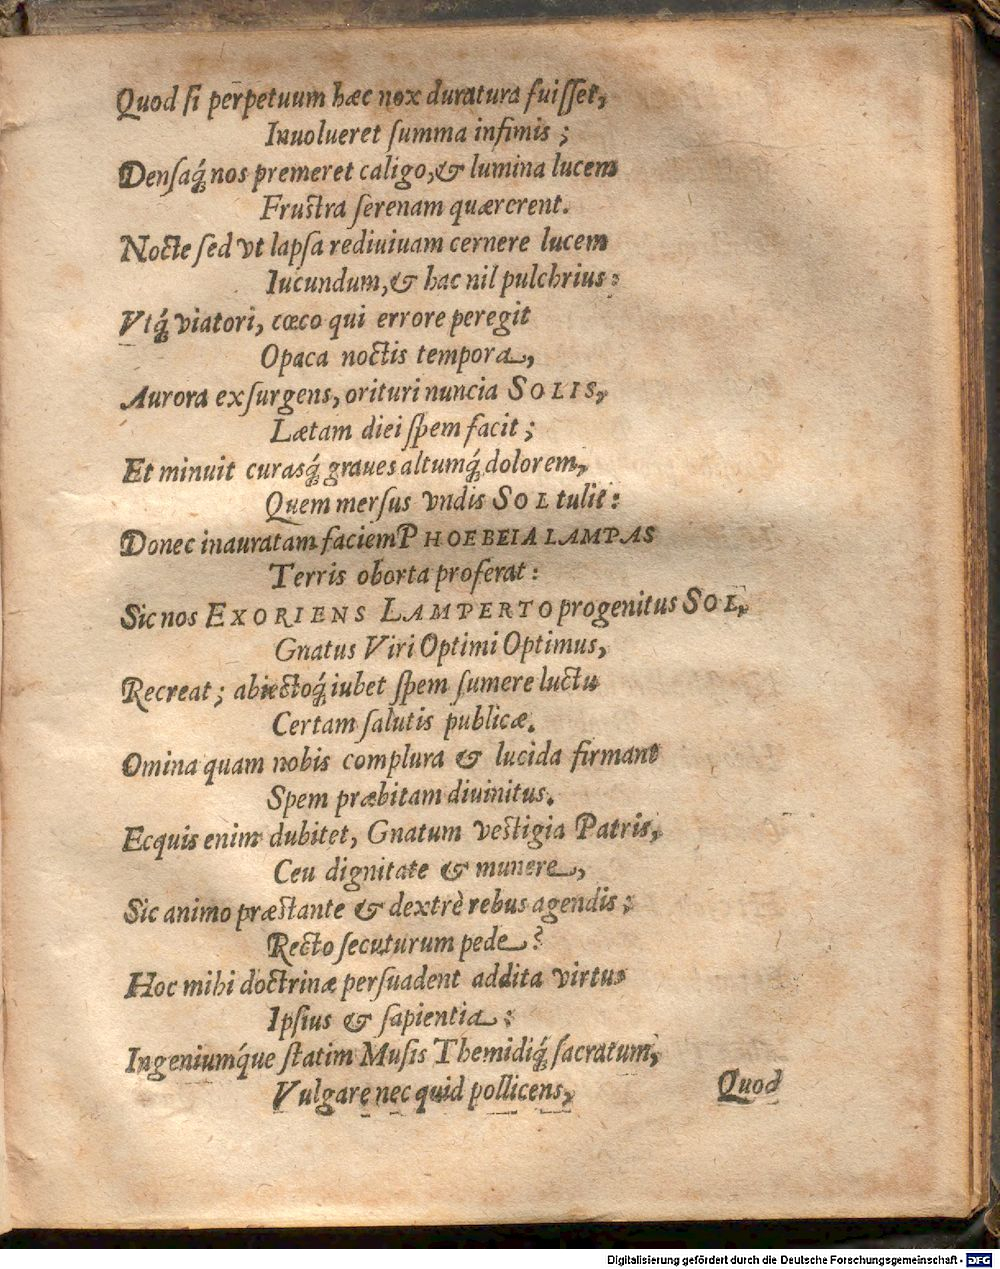 Quod ſi perpetuum hæc nox duratura fuiſſet,
Inuolueret ſumma infimis ;
Denſaq́; nos premeret caligo, & lumina lucem
Fruſtra ſerenam quærerent.
Nocte ſed vt lapſa rediuiuam cernere lucem
Iucundum, & hac nil pulchrius:
Vtq́; viatori, cœco qui errore peregit
Opaca noctis tempora,
Aurora exſurgens, orituri nuncia SOLIS,
Lætam diei ſpem facit ;
Et minuit curasq́; graues altumq́; dolorem,
Quem merſus vndis SOL tulit:
Donec inauratam faciem PHOEBEIA LAMPAS
Terris oborta proferat:
Sic nos EXORIENS LAMPERTO progenitus SOL,
Gnatus Viri Optimi Optimus,
Recreat ; abiectoq́; iubet ſpem ſumere luctu
Certam ſalutis publicæ.
Omina quam nobis complura & lucida firmant
Spem præbitam diuinitus.
Ecquis enim dubitet, Gnatum veſtigia Patris,
Ceu dignitate & munere,
Sic animo præſtante & dextrè rebus agendis ;
Recto ſecuturum pede ?
Hoc mihi doctrinæ perſuadent addita virtus
Ipſius & ſapientia :
Ingeniumq́ue ſtatim Muſis Themidiq́; ſacratum,
Vulgare nec quid pollicens,
Quod
Digitalisierung gefördert durch die Deutsche Forschungsgemeinschaft - DFG